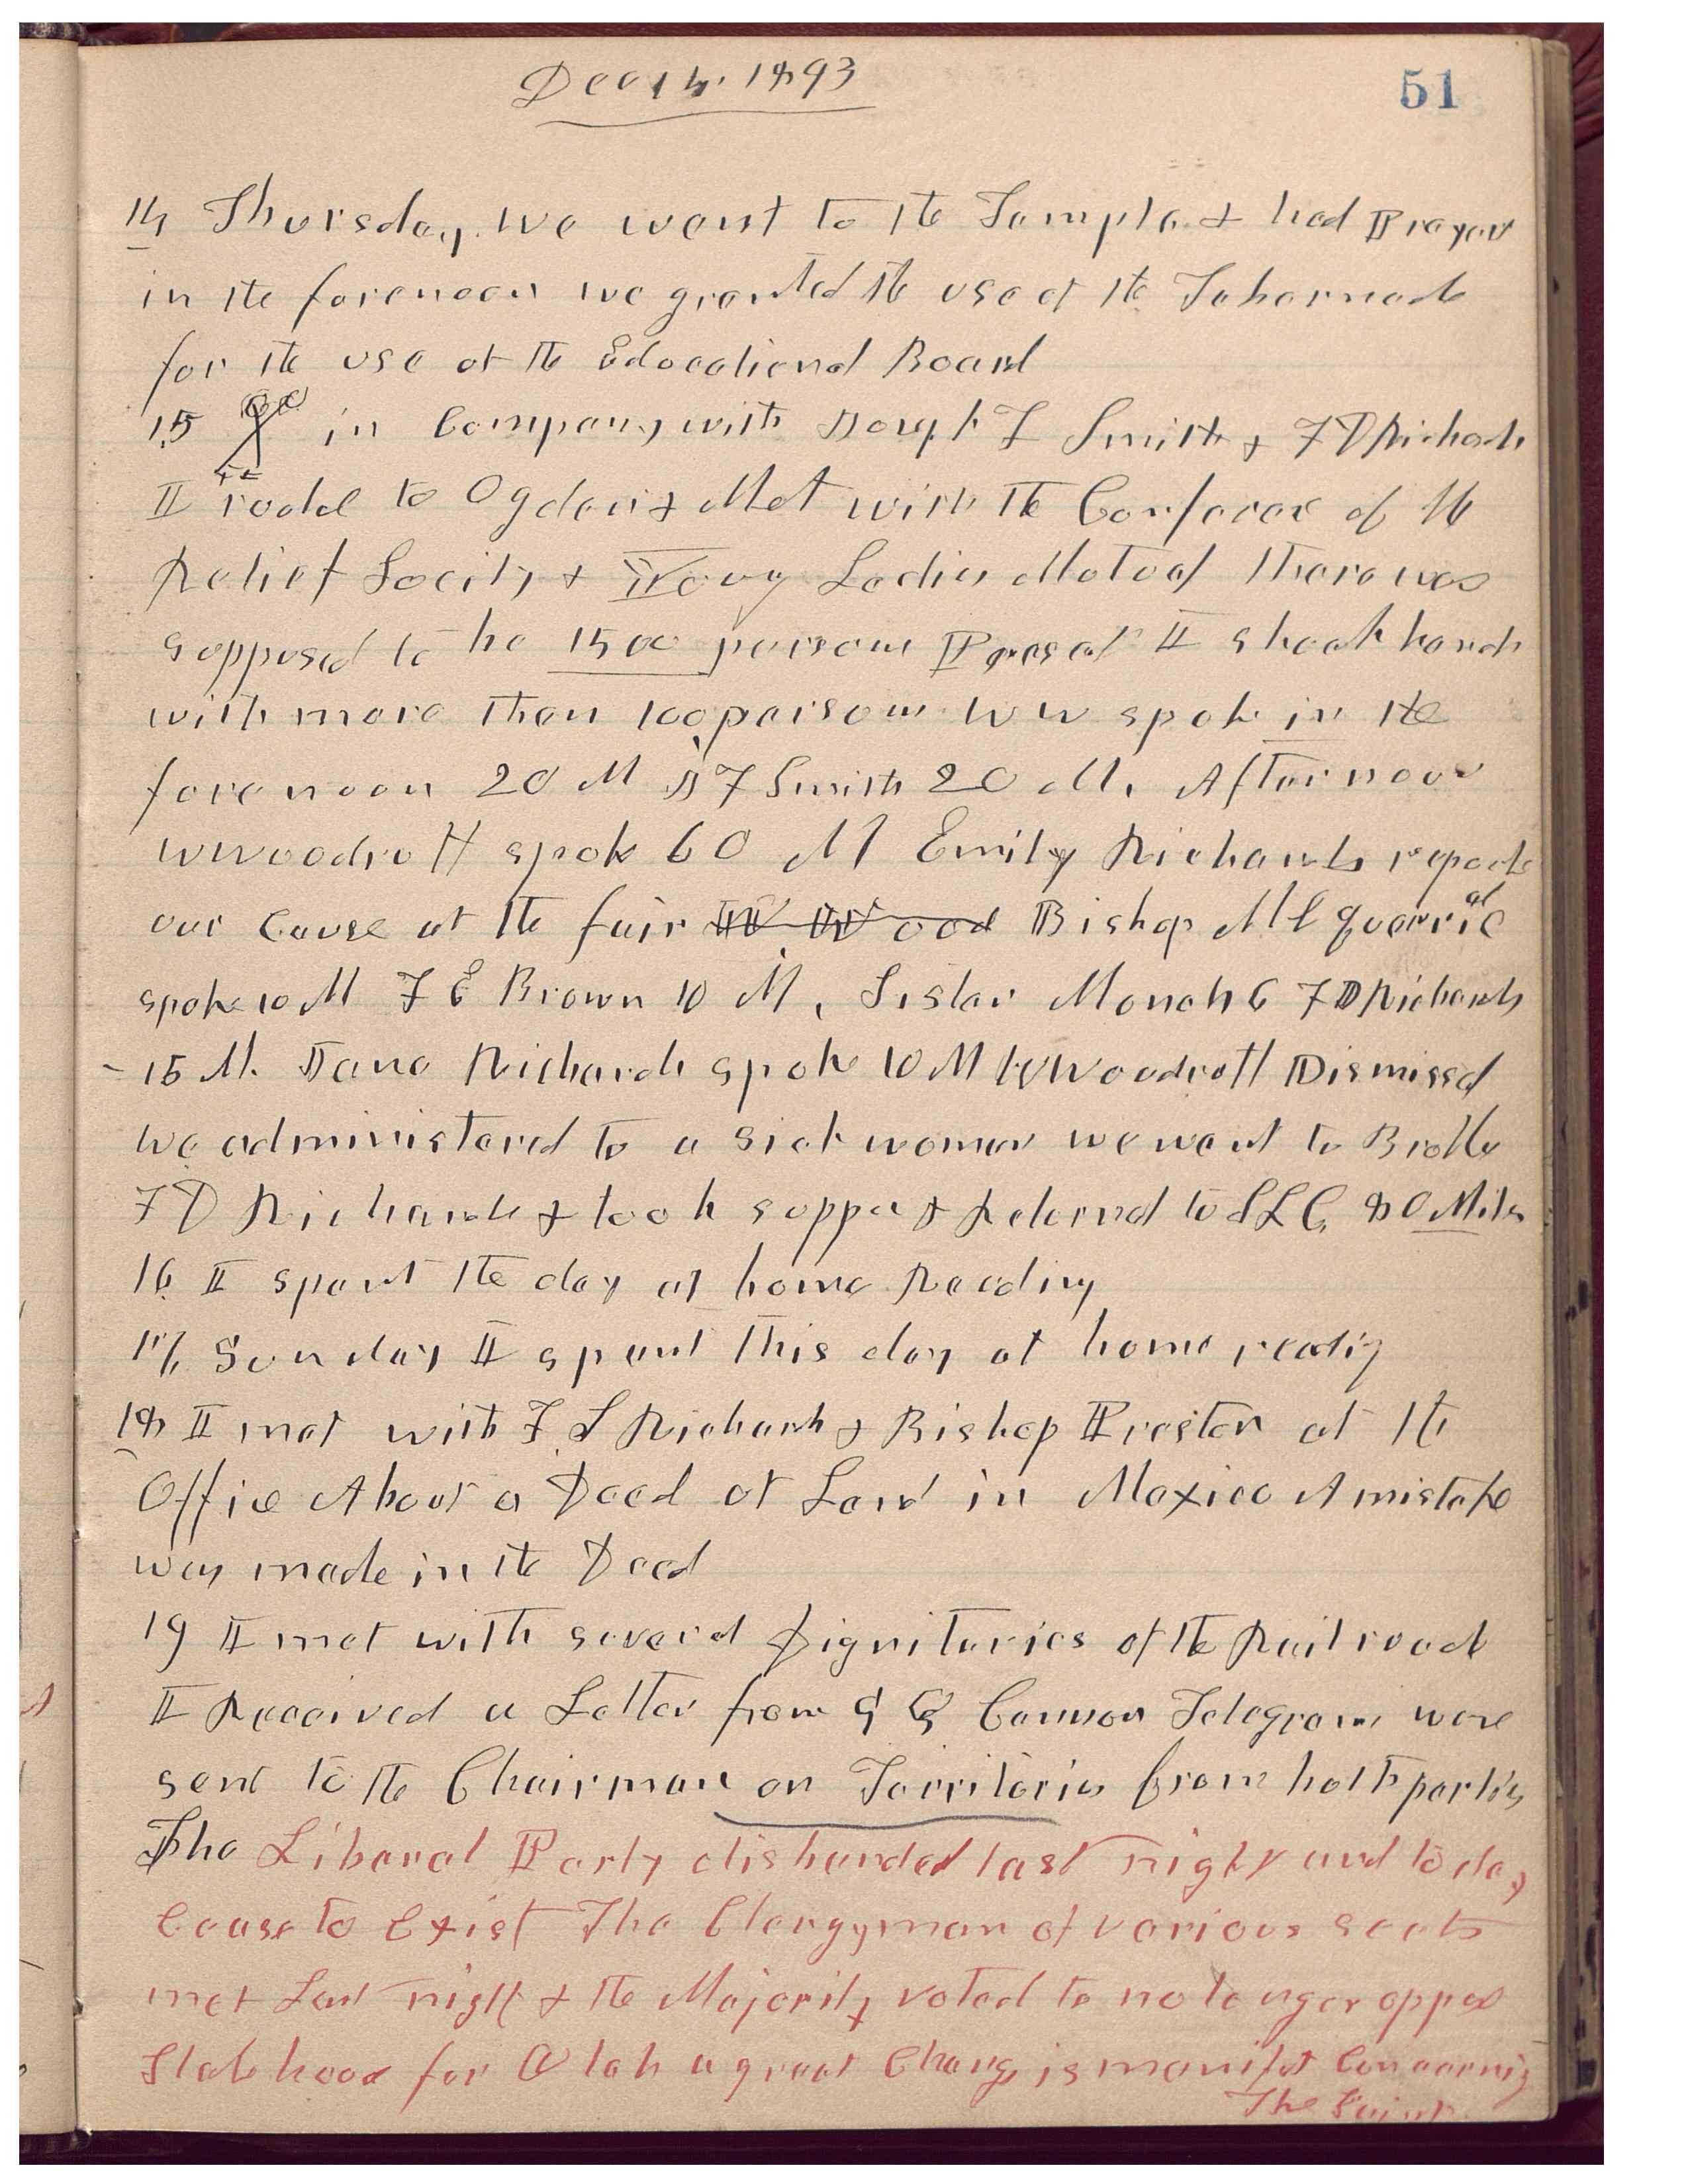 Dec 14. 1893
51
14 Thursday. We went to the Temple. & had Prayer
in the forenoon we granted the use of the Tabernacle
for the use of the Educational Board
15 in Company with Joseph F Smith & F D Richards
I rode to Ogden & Met with the Conferece of the
Relief Socity & Young Ladies Mutual there was
supposed to be 1500 persons Present I shook hands
with more than 100 persons W W spok in the
forenoon 20 M J F Smith 20 M. Afternoon
W Woodruff spok 60 M Emily Richards report
our Cause at the fair W Wood Bishop
spoke 10 M F E Brown 10 M, Sister Monch 6 F D Richards
15 M. Jane Richards spoke 10 M W Woodruff Dismissed
we administered to a sick woman we went to Brother
F D Richards & took supper & Returnd to SLC. 80 Miles
16 I spent the day at home Reading
17 Sunday I spent this day at home readig
18 I met with F. S Richards & Bishop Preston at the
Office About a Deed of Land in Mexico A mistake
was made in the Deed
19 I met with several Dignitaries of the Railroads
I Received a Letter from G Q Cannon Telegrams were
sent to the Chairman on Territories from both parties
The Liberal Party disbanded last night and to day
Cease to Exist The Clergyman of various sects
met Last night & the Majority voted to no longer oppose
Statehood for Utah a great Change is manifst Concerning
The Saints